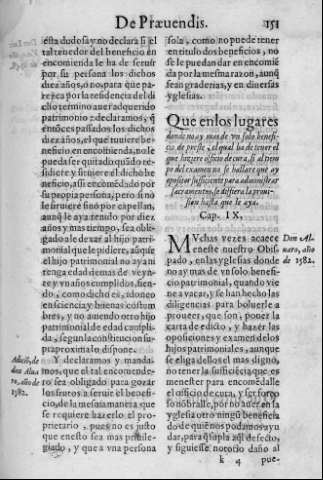 De Præuendis. 151
esta dudosa y no declara si el
tal tenedor del beneficio en
encomienda le ha de seruir
por su persona los dichos
diez años, o no, para que pa-
rezca por la residencia del di-
cho termino auer adquerido
patrimonio: declaramos, q̃
entõces passados los dichos
diez años, el que tuuiere be-
neficio en encomienda, no le
pueda ser quitado quãdo re-
sidiere y siruiere el dicho be-
neficio, assi encomẽdado por
su propia persona, pero si no
le siruiere sino por capellan,
aunq̃ le aya tenido por diez
años y mas tiempo, sea obli-
gado a dexar al hijo patri-
monial que le pidiere, aũque
el tal patrimonial no aya ni
tenga edad demas de veyn-
te y vn años cumplidos, sien-
do, como dicho es, ydoneo
en sciencia y buenas costum
bres, y no auiendo otro hijo
patrimonial de edad cumpli-
da, segun la constitucion su-
pra proxima le dispone.
Y declaramos y manda-
mos, que el tal encomende-
ro sea obligado para gozar
los frutos a seruir el benefi-
cio, de la mesma manera que
se requiere hazerlo el pro-
prietario, pues no es justo
que en esto sea mas priuile-
giado, y que a vna persona
Adicion, de
don Alua
ro, año de
1582.
sola, como no puede tener
en titulo dos beneficios, no
se le puedan dar en encomiẽ
da por la mesma razon, aunq̃
sean gradenias, y en diuersas
yglesias.
Que en los lugares
donde no ay mas de vn solo benefi-
cio de preste, el qual ha de tener el
que huziere oficio de cura, si al tiem
po del examen no se hallare que ay
opositor sufficiente para administrar
Sacramentos, se diffiera la proui-
sion hasta que le aya.
Cap. IX.
MVchas vezes acaece
en neste nuestro Obis-
pado, en las yglesias donde
no ay mas de vn solo benefi-
cio patrimonial, quando vie
ne a vacar, y se han hecho las
diligencias para boluerle a
proueer, que son, poner la
carta de edicto, y hazer las
oposiciones y examen delos
hijos patrimoniales, aunque
se elija dellos el mas digno,
no tener la sufficiẽcia que es
menester para encomẽdalle
el officio de cura, y ser forço
so nõbralle, por no auer en la
yglesia otro ningũ benefficia
do de quiẽ nos podamos ayu
dar, para q̃ supla aq̃l defecto,
y siguiesse notorio daño al
Don Al-
uaro, año
de 1582.
k 4 pue-